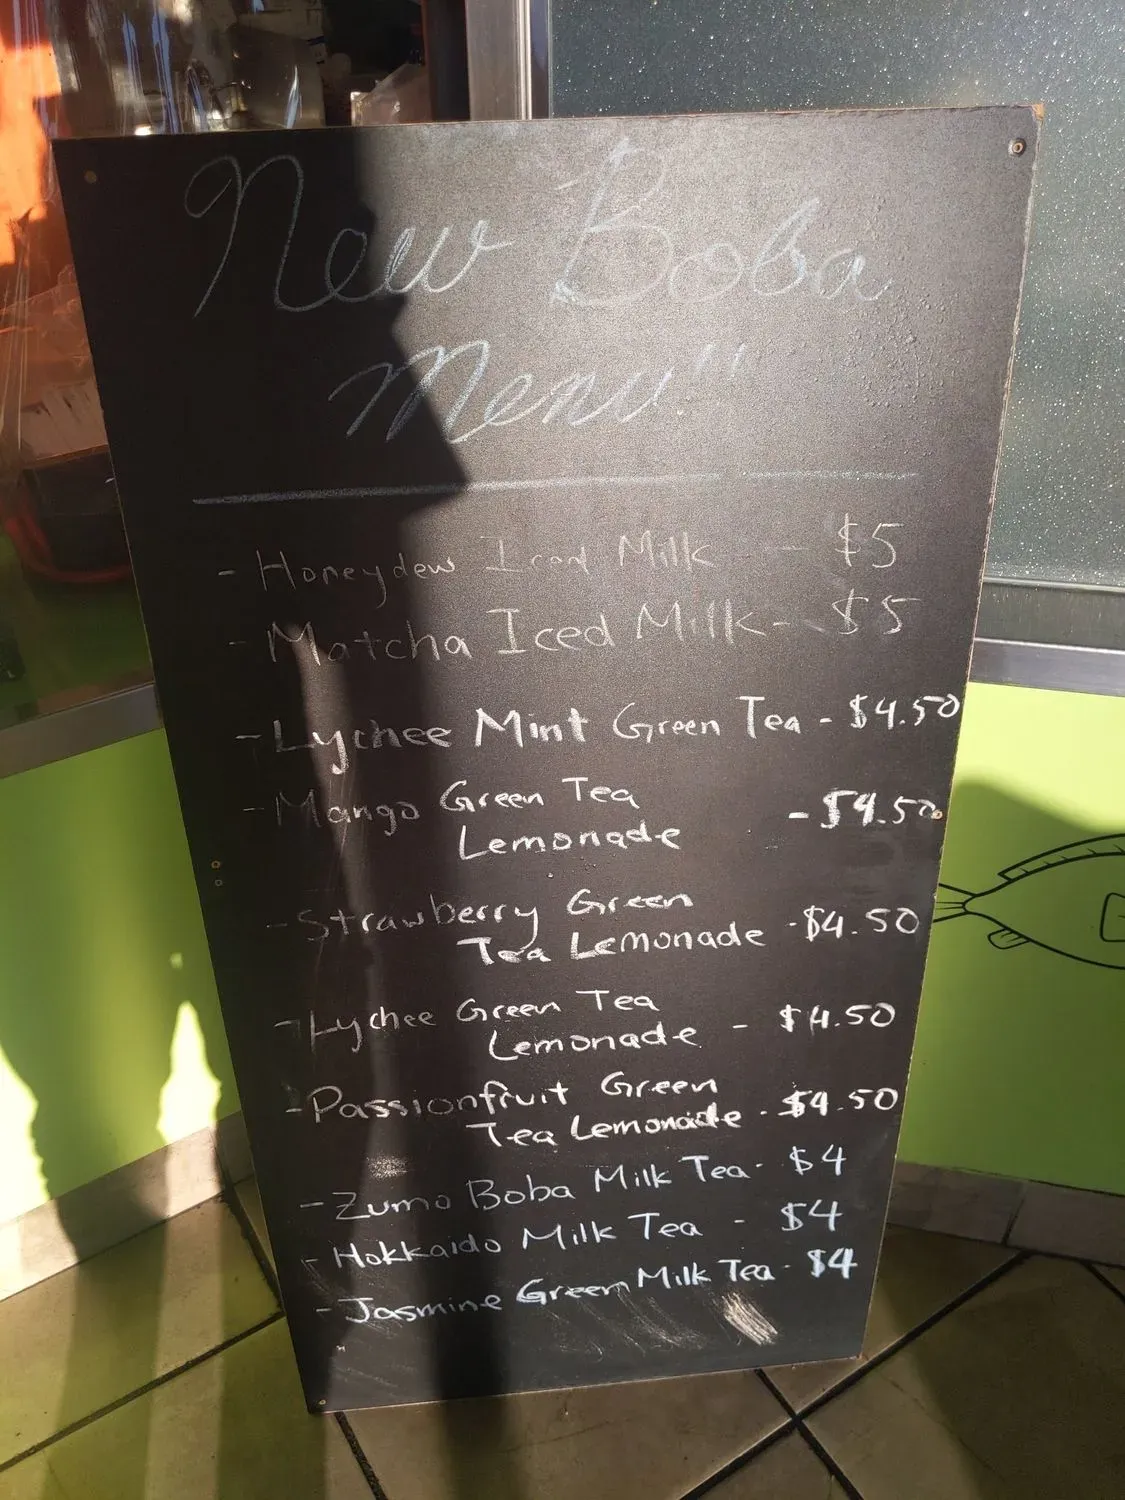 New Boba
Menu"
- Honeydew Iced Milk - - $5
- Matcha Iced Milk - - $5
- Lychee Mint Green Tea - $4.50
- Mango Green Tea
Lemonade - $4.50
- Strawberry Green
Tea Lemonade - $4.50
- Lychee Green Tea
Lemonade - $4.50
- Passionfruit Green
Tea Lemonade - $4.50
- Zumo Boba Milk Tea - $4
- Hokkaido Milk Tea - $4
- Jasmine Green Milk Tea - $4